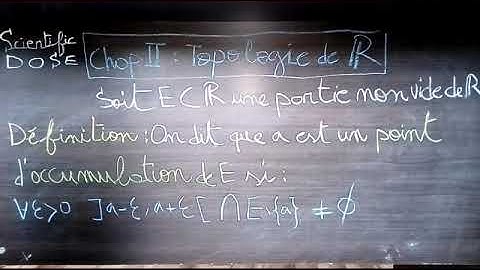 Scientific
DOSE
Chap II : Topologie de ℝ
Soit E ⊂ ℝ une partie non vide de ℝ
Définition : On dit que a est un point
d'accumulation de E si :
∀ε>0 ]a-ε, a+ε[ ∩ E\{a} ≠ ∅